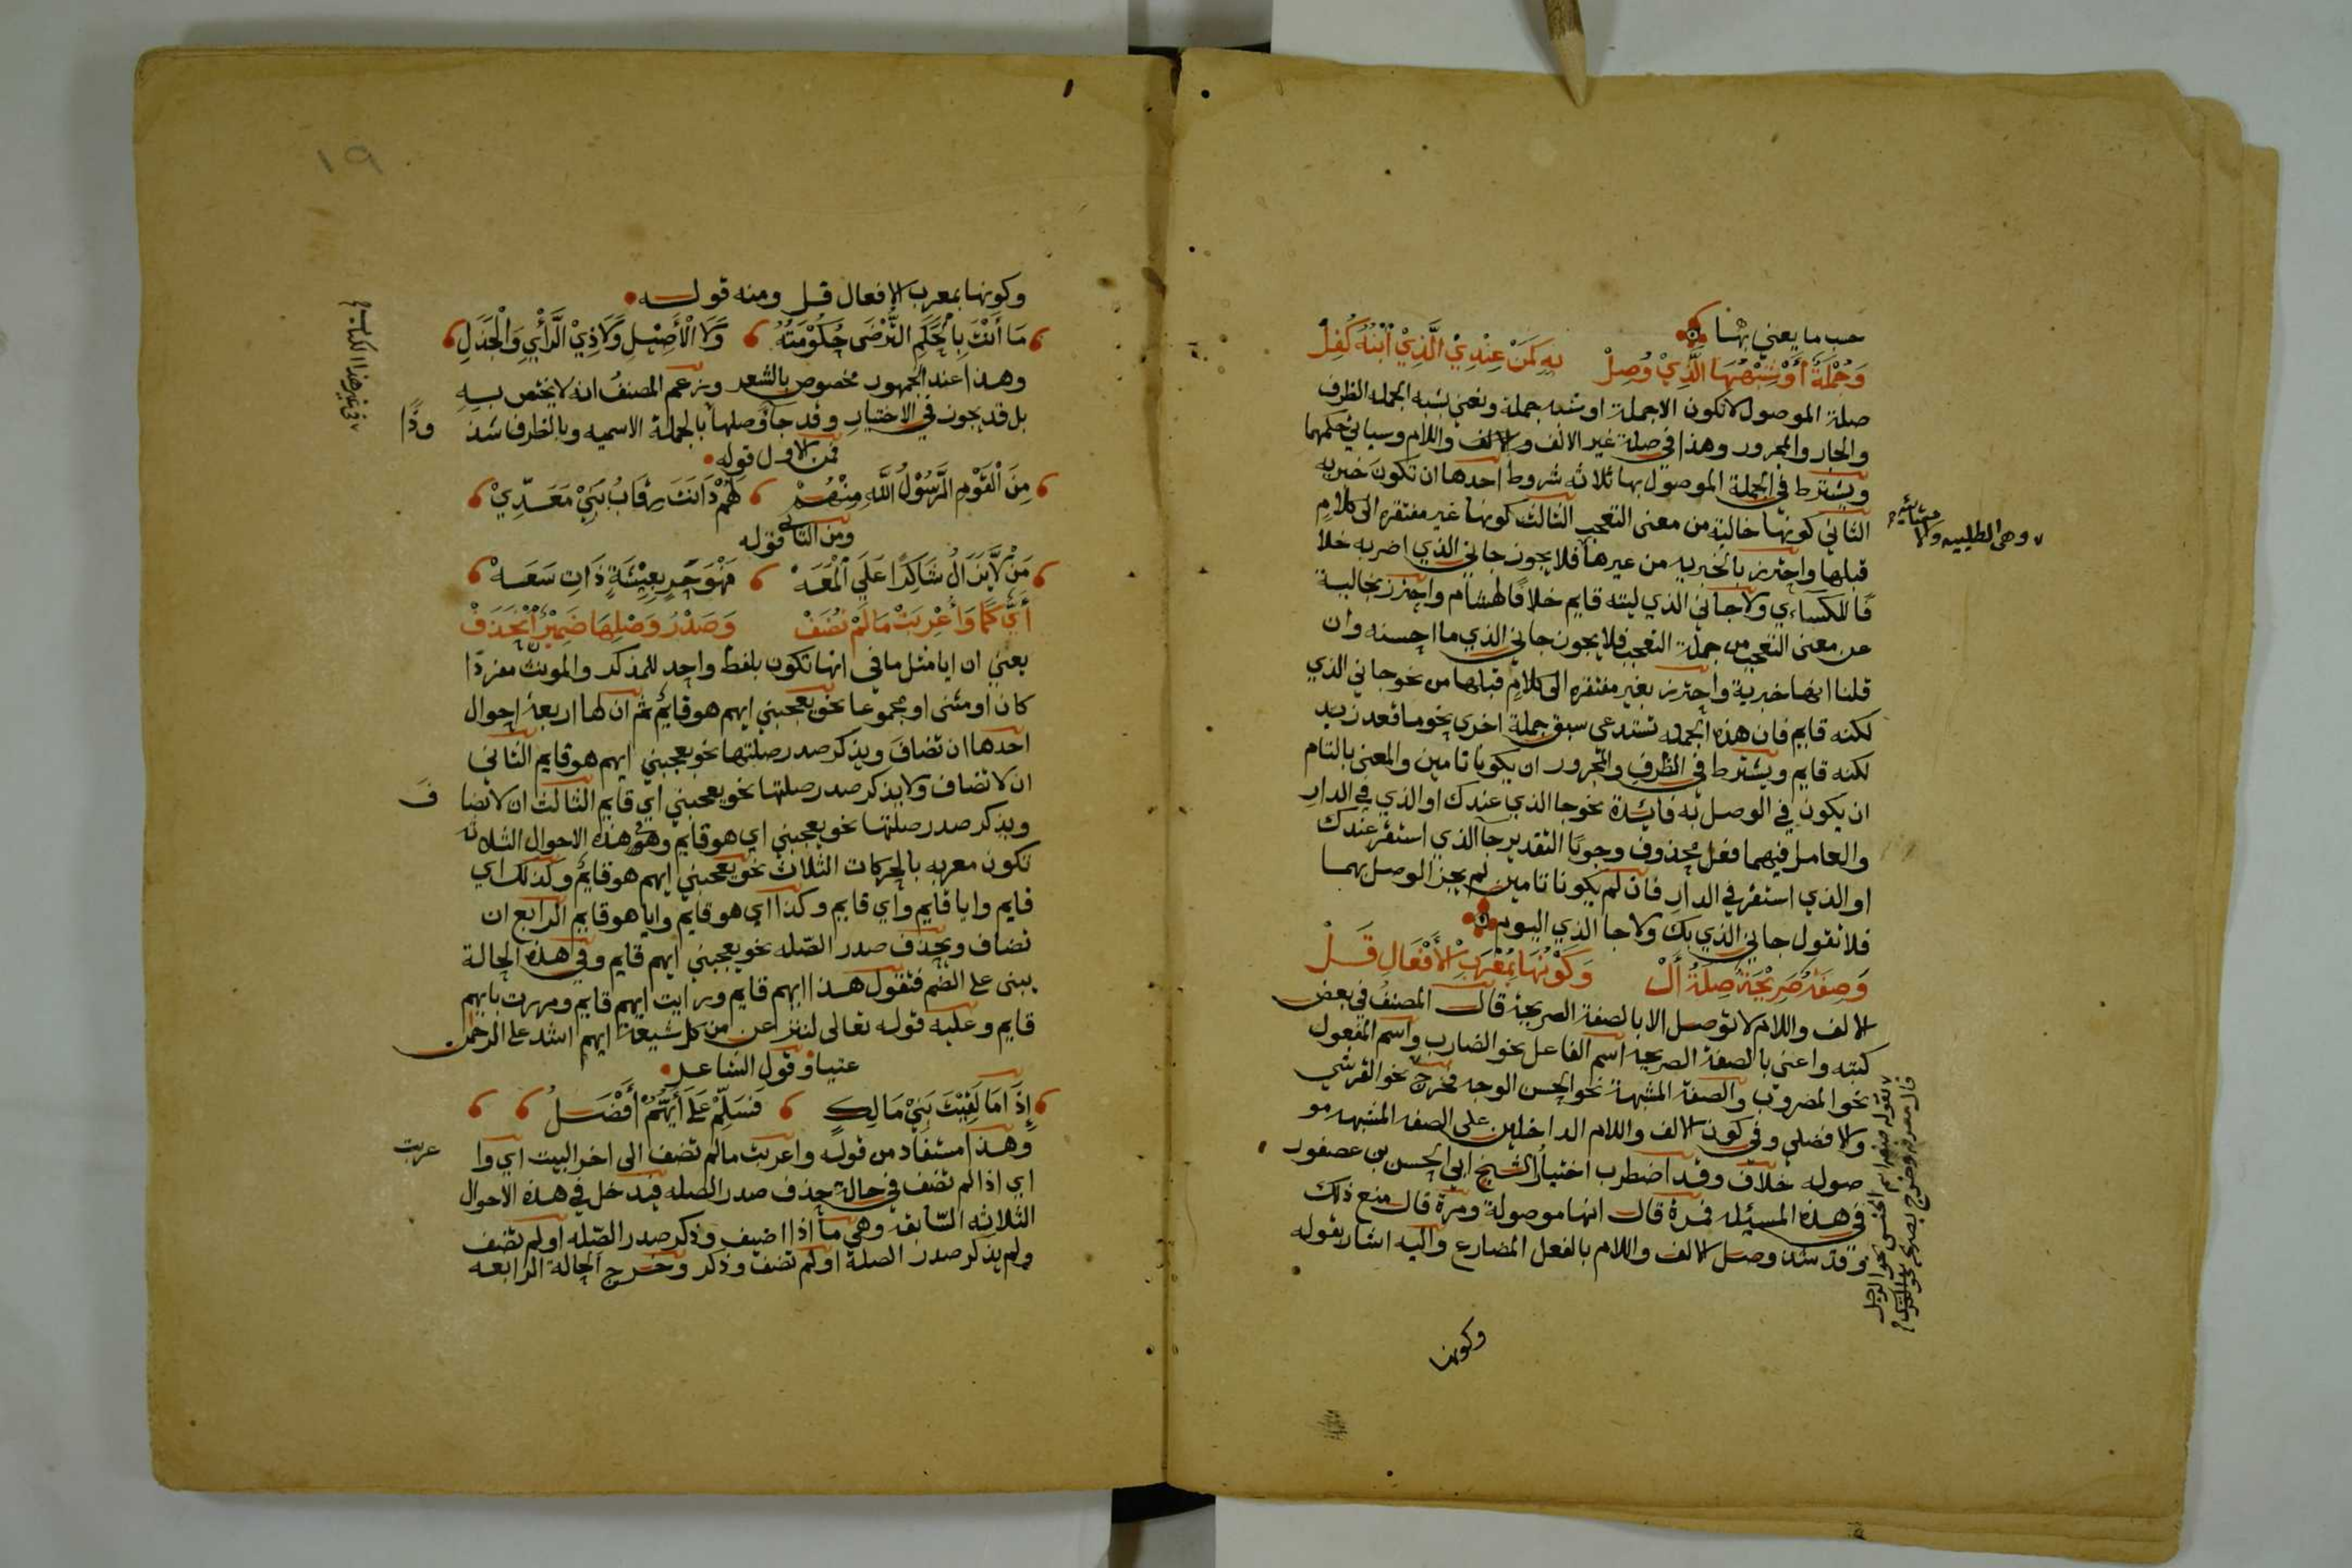 حسب ما يعني بها
وَجُمْلَةٌ أَوْ شِبْهُهَا الَّذِيْ وُصِلْ بِهِ كَمَنْ عِنْدِيْ الَّذِيْ ابْنُهُ كُفِلْ
صلة الموصول لا تكون الا جملة او شبه جملة ونعني بشبه الجمله الظرف
والجار والمجرور وهذا في صلة غير الالف والالف واللام وسياتي حكمهما
ويشترط في الجملة الموصول بها ثلاثه شروط احدها ان تكون خبريه
الثاني كونها خالية من معنى التعجب الثالث كونها غير مفتقره الى كلام
قبلها واحترز بالخبريه من غيرها فلا يجوز جاني الذي اضربه خلا
فا للكسائي ولا جاني الذي ليته قايم خلافا لهشام واحترز بخالية
عن معنى التعجب من جملة التعجب فلا يجوز جاني الذي ما احسنه وان
قلنا انها خبرية واحترز بغير مفتقره الى كلام قبلها من نحو جاني الذي
لكنه قايم فان هذه الجمله تستدعي سبق جملة اخرى نحو ما قعد زيد
لكنه قايم ويشترط في الظرف والمجرور ان يكونا تامين والمعني بالتام
ان يكون في الوصل به فايدة نحو جا الذي عندك او الذي في الدار
والعامل فيهما فعل محذوف وجوبا التقدير جا الذي استقر عندك
او الذي استقر في الدار فان لم يكونا تامين لم يجز الوصل بهما
فلا تقول جاني الذي بك ولا جا الذي اليوم
وَصِفَةٌ صَرِيْحَةٌ صِلَةُ أَلْ وَكَوْنُهَا بِمُعْرَبِ الْأَفْعَالِ قَلْ
الالف واللام لا توصل الا بالصفة الصريحة قال المصنف في بعض
كتبه واعني بالصفة الصريحه اسم الفاعل نحو الضارب واسم المفعول
نحو المضروب والصفة المشبهة نحو الحسن الوجه فخرج نحو القرشي
والافضل وفي كون الالف واللام الداخلين على الصفه المشبهه مو
صوله خلاف وقد اضطرب اختيار الشيخ ابي الحسن بن عصفور
في هذه المسيله فمرة قال انها موصولة ومرة قال منع ذلك
وقد شذ وصل الالف واللام بالفعل المضارع واليه اشار بقوله
وكونها
وهى الطلبيه والانشائيه
١٩
وكونها بمعرب الافعال قل ومنه قوله
مَا أَنْتَ بِالْحَكَمِ التُّرْضَى حُكُوْمَتُهُ وَلَا الْأَصِيْلِ وَلَا ذِيْ الرَّأْيِ وَالْجَدَلِ
وهذا عند الجمهور مخصوص بالشعر وزعم المصنف انه لا يختص به
بل قد يجوز في الاختيار وقد جا وصلها بالجملة الاسميه وبالظرف شذ وذا
فمن الاول قوله
مِنَ الْقَوْمِ الرَّسُوْلُ اللهِ مِنْهُمْ لَهُمْ دَانَتْ رِقَابُ بَنِيْ مَعَدِّيْ
ومن الثاني قوله
مَنْ لَا يَزَالُ شَاكِرًا عَلَى الْمَعَهْ فَهْوَ حَرٍ بِعِيْشَةٍ ذَاتِ سَعَهْ
أَيٌّ كَمَا وَأُعْرِبَتْ مَا لَمْ تُضَفْ وَصَدْرُ وَصْلِهَا ضَمِيْرٌ انْحَذَفْ
يعني ان ايا مثل ما في انها تكون بلفظ واحد للمذكر والمونث مفردا
كان او مثنى او مجموعا نحو يعجبني ايهم هو قايم ثم ان لها اربعة احوال
احدها ان تضاف ويذكر صدر صلتها نحو يعجبني ايهم هو قايم الثاني
ان لا تضاف ولا يذكر صدر صلتها نحو يعجبني اي قايم الثالث ان لا تضا ف
ويذكر صدر صلتها نحو يعجبني اي هو قايم وفي هذه الاحوال الثلاثه
تكون معربه بالحركات الثلاث نحو يعجبني ايهم هو قايم وكذلك اي
قايم وايا قايم واي قايم وكذا اي هو قايم وايا هو قايم الرابع ان
تضاف ويحذف صدر الصله نحو يعجبني ايهم قايم وفي هذه الحالة
يبنى على الضم فتقول هذا ايهم قايم ورايت ايهم قايم ومررت بايهم
قايم وعليه قوله تعالى لننزعن من كل شيعة ايهم اشد على الرحمن
عتيا وقول الشاعر
إِذَا مَا لَقِيْتَ بَنِيْ مَالِكٍ فَسَلِّمْ عَلَى أَيُّهُمْ أَفْضَلُ
وهذا مستفاد من قوله واعربت ما لم تضف الى اخر البيت اي وا عربت
اي اذا لم تضف في حالة حذف صدر الصله فيدخل في هذه الاحوال
الثلاثه السابقه وهي ما اذا اضيف وذكر صدر الصله او لم تضف
ولم يذكر صدر الصلة او لم تضف وذكر وخرج الحالة الرابعه
في غير هذا الكتاب